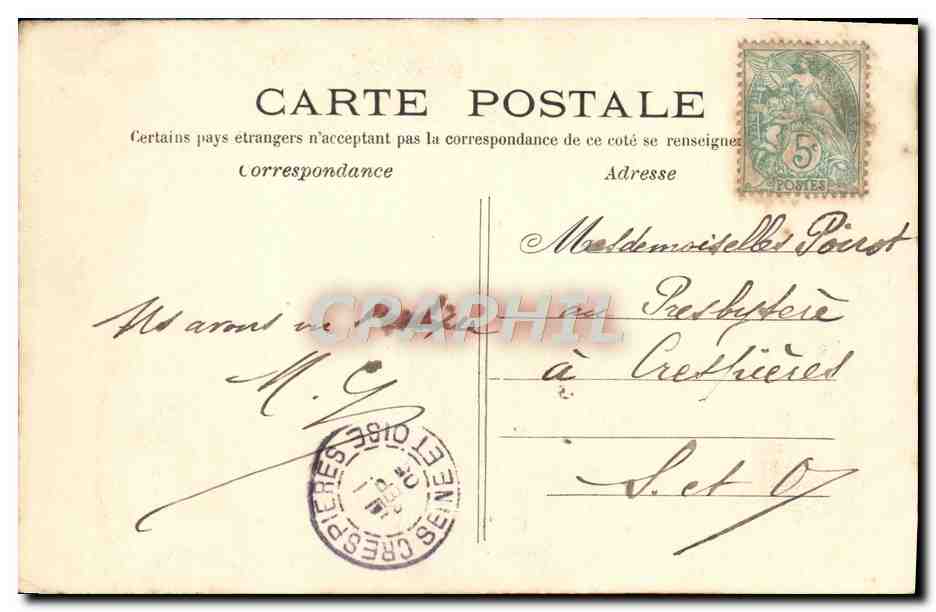 CARTE POSTALE
Certains pays étrangers n'acceptant pas la correspondance de ce coté se renseigner
Correspondance
Adresse
5c
POSTES
Mesdemoiselles Poirot
au Presbytère
à Crespières
S. et O
Ns avons vu
M. G
CRAPHIL
CRESPIERES SEINE ET OISE